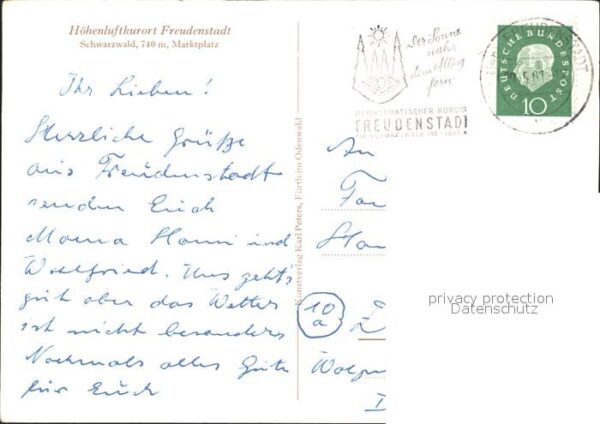 Höhenluftkurort Freudenstadt
Schwarzwald, 740 m, Marktplatz
Ihr Lieben!
Herzliche Grüße
aus Freudenstadt
senden Euch
Mama Hanni und
Wolfried. Uns geht's
gut aber das Wetter
ist nicht besonders
Nochmals alles Gute
für Euch
Kunstverlag Karl Peters, Fürth im Odenwald
Der Sonne
nah
dem Alltag
fern
HEILKLIMATISCHER KURORT
FREUDENSTADT
DEUTSCHE BUNDESPOST
10
FREUDENSTADT
An
Fa
10
a
privacy protection
Datenschutz